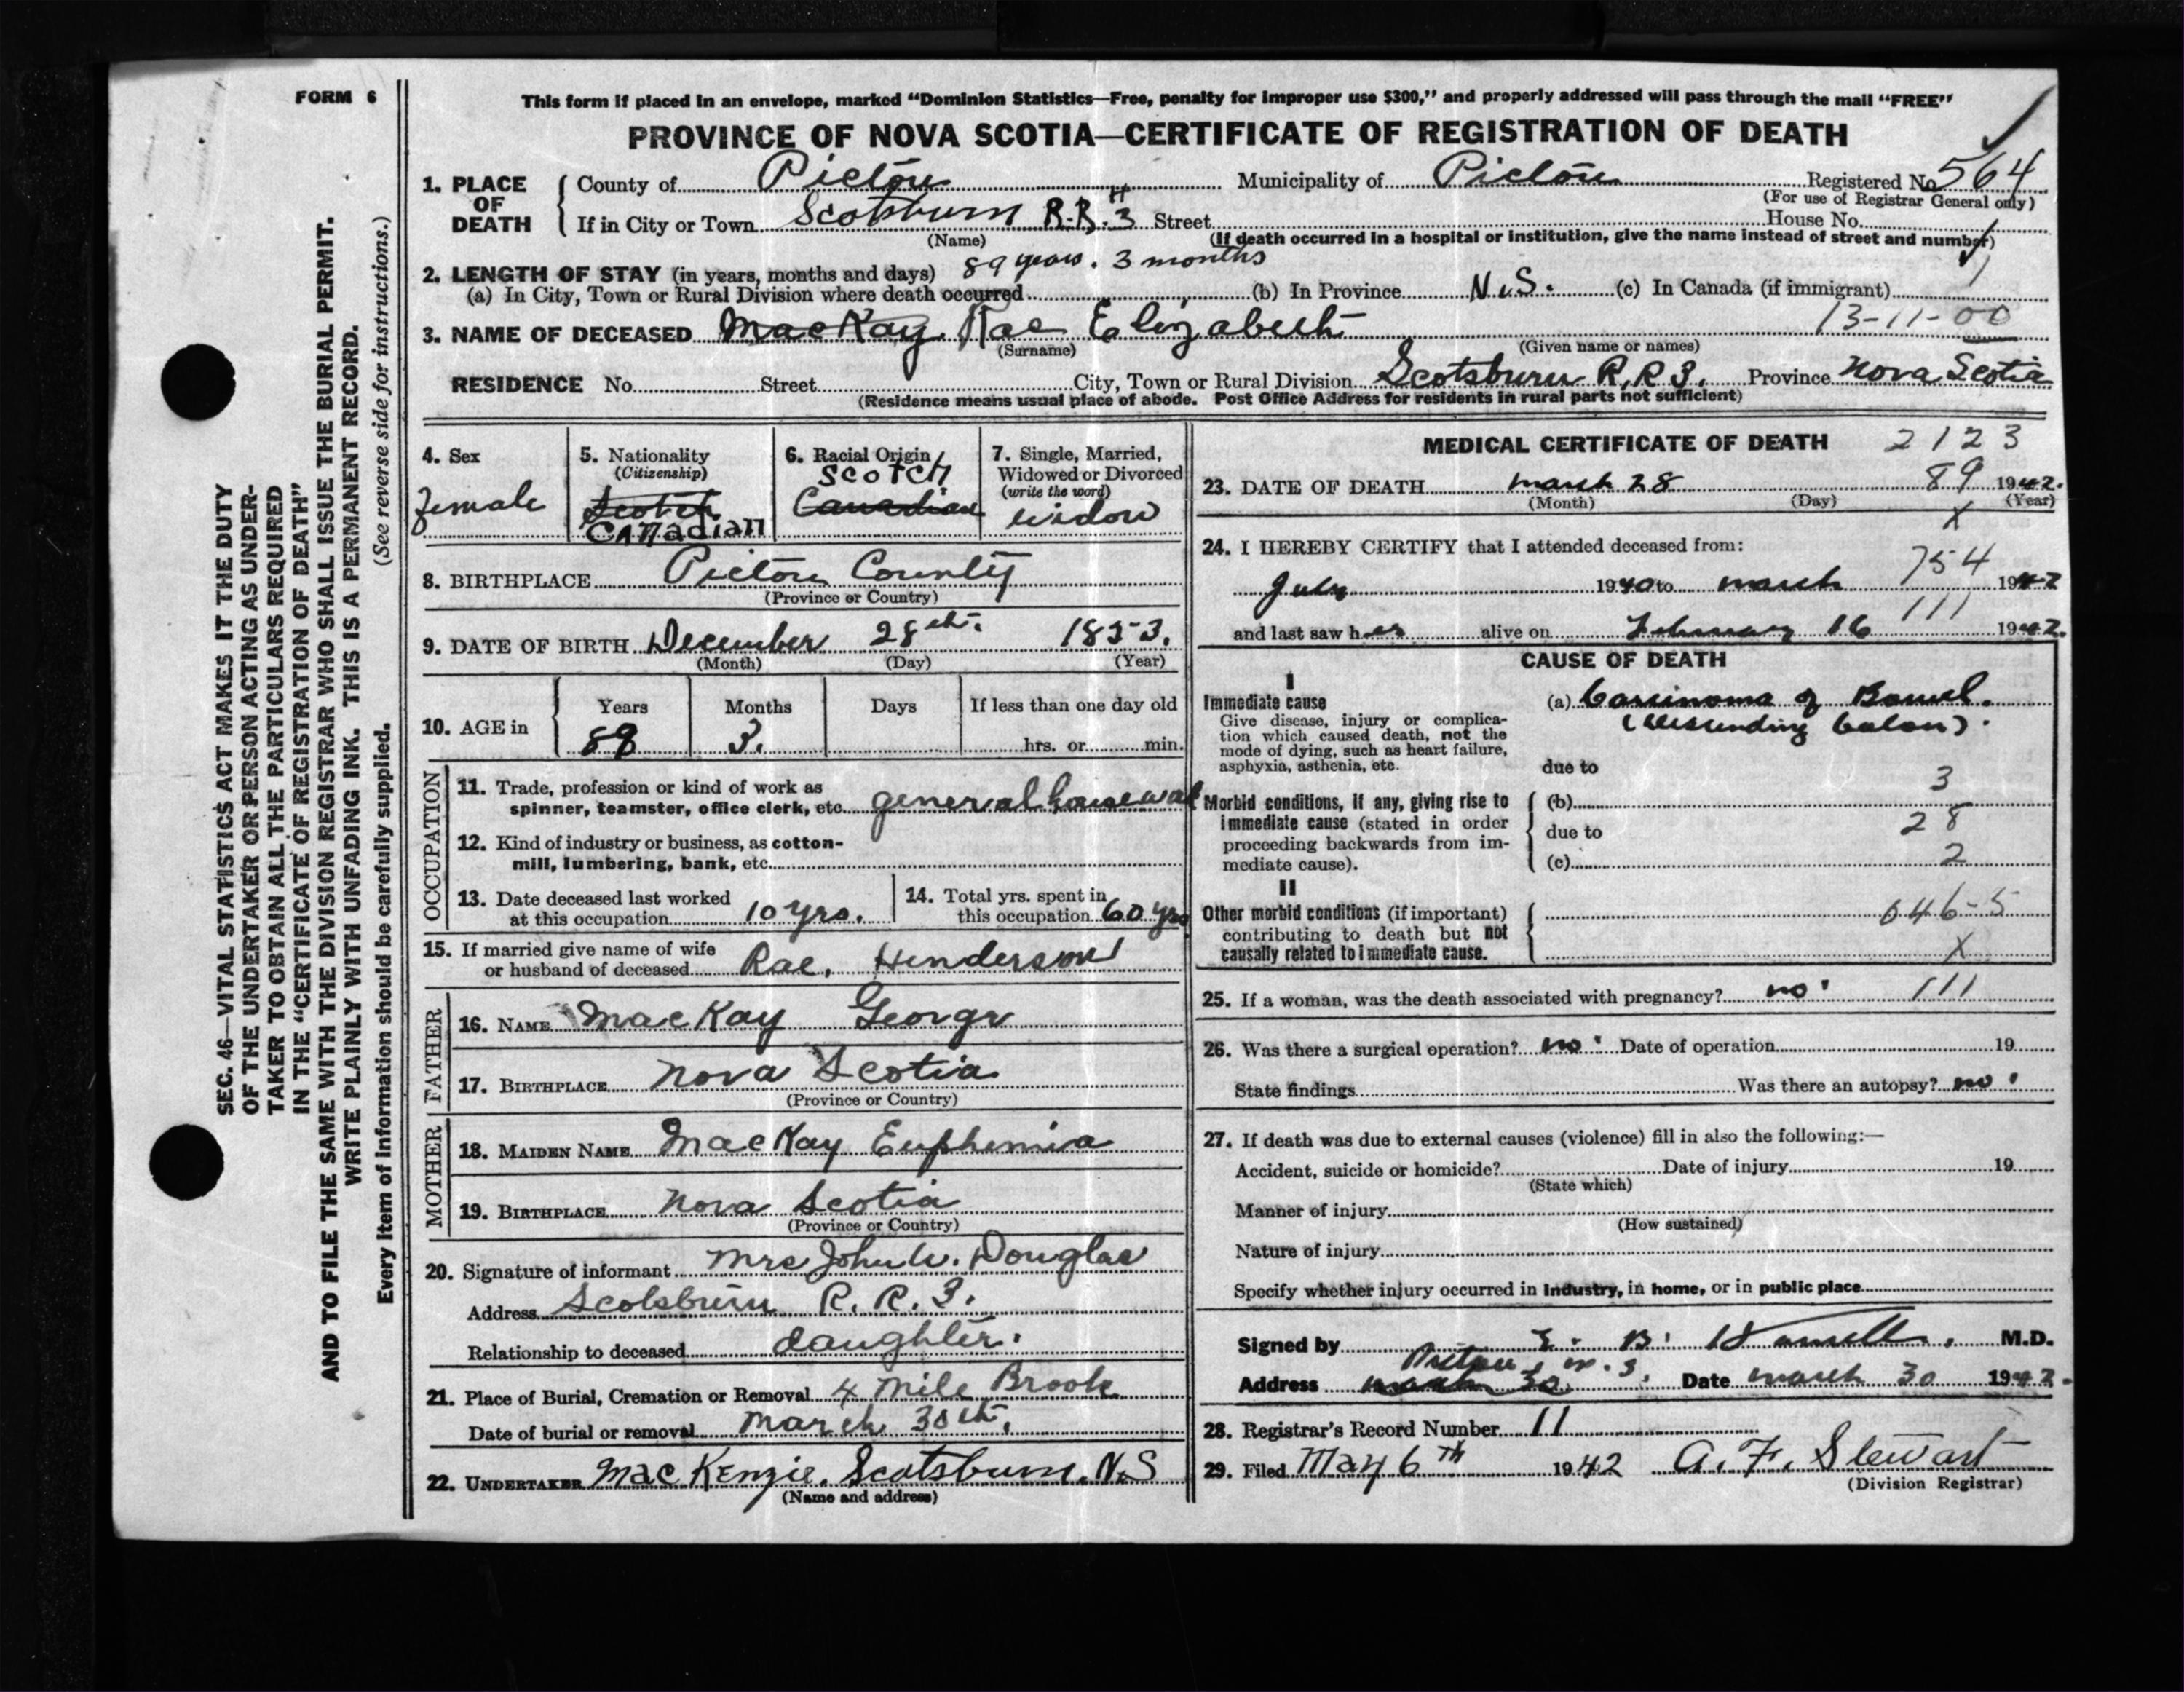 FORM 6
This form if placed in an envelope, marked “Dominion Statistics—Free, penalty for improper use $300,” and properly addressed will pass through the mail “FREE”
PROVINCE OF NOVA SCOTIA—CERTIFICATE OF REGISTRATION OF DEATH
SEC. 46—VITAL STATISTICS ACT MAKES IT THE DUTY
OF THE UNDERTAKER OR PERSON ACTING AS UNDER-
TAKER TO OBTAIN ALL THE PARTICULARS REQUIRED
IN THE “CERTIFICATE OF REGISTRATION OF DEATH”
AND TO FILE THE SAME WITH THE DIVISION REGISTRAR WHO SHALL ISSUE THE BURIAL PERMIT.
WRITE PLAINLY WITH UNFADING INK. THIS IS A PERMANENT RECORD.
Every item of information should be carefully supplied. (See reverse side for instructions.)
1. PLACE OF DEATH
County of Pictou Municipality of Pictou Registered No 564
(For use of Registrar General only)
If in City or Town Scotsburn R.R. #3 Street House No.
(Name) (If death occurred in a hospital or institution, give the name instead of street and number)
2. LENGTH OF STAY (in years, months and days) 89 years. 3 months
(a) In City, Town or Rural Division where death occurred (b) In Province N.S. (c) In Canada (if immigrant)
3. NAME OF DECEASED MacKay Rae Elizabeth 13-11-00
(Surname) (Given name or names)
RESIDENCE No. Street City, Town or Rural Division Scotsburn R.R 3. Province Nova Scotia
(Residence means usual place of abode. Post Office Address for residents in rural parts not sufficient)
4. Sex
female
5. Nationality
(Citizenship)
Scotch
Canadian
6. Racial Origin
Scotch
Canadian
7. Single, Married,
Widowed or Divorced
(write the word)
widow
8. BIRTHPLACE Pictou County
(Province or Country)
9. DATE OF BIRTH December 28th. 1853.
(Month) (Day) (Year)
10. AGE in
Years Months Days If less than one day old
3. hrs. or min.
OCCUPATION
11. Trade, profession or kind of work as
spinner, teamster, office clerk, etc. general housework
12. Kind of industry or business, as cotton-
mill, lumbering, bank, etc.
13. Date deceased last worked
at this occupation 10 yrs.
14. Total yrs. spent in
this occupation 60 yrs
15. If married give name of wife
or husband of deceased Rae, Henderson
FATHER
16. NAME MacKay George
17. BIRTHPLACE Nova Scotia
(Province or Country)
MOTHER
18. MAIDEN NAME MacKay Euphemia
19. BIRTHPLACE Nova Scotia
(Province or Country)
20. Signature of informant Mrs John W. Douglas
Address Scotsburn R. R. 3.
Relationship to deceased daughter.
21. Place of Burial, Cremation or Removal 4 Mile Brook
Date of burial or removal March 30th.
22. UNDERTAKER MacKenzie, Scotsburn, N.S
(Name and address)
MEDICAL CERTIFICATE OF DEATH 2123
23. DATE OF DEATH March 28 89 1942.
(Month) (Day) (Year)
X
24. I HEREBY CERTIFY that I attended deceased from:
754
July 1940 to March 1942
111
and last saw her alive on February 16 1942.
CAUSE OF DEATH
I
Immediate cause
Give disease, injury or complica-
tion which caused death, not the
mode of dying, such as heart failure,
asphyxia, asthenia, etc.
(a) Carcinoma of Bowel.
(Descending Colon).
due to
3
Morbid conditions, if any, giving rise to
immediate cause (stated in order
proceeding backwards from im-
mediate cause).
(b)
due to 28
(c) 2
II
Other morbid conditions (if important)
contributing to death but not
causally related to immediate cause.
046-5
X
25. If a woman, was the death associated with pregnancy? no. 111
26. Was there a surgical operation? no. Date of operation 19
State findings Was there an autopsy? no.
27. If death was due to external causes (violence) fill in also the following:—
Accident, suicide or homicide? Date of injury 19
(State which)
Manner of injury
(How sustained)
Nature of injury
Specify whether injury occurred in industry, in home, or in public place
Signed by E. B. M.D.
Pictou, N.S.
Address March 30. Date March 30 1942.
28. Registrar’s Record Number 11
29. Filed May 6th 1942 A. F. Stewart
(Division Registrar)